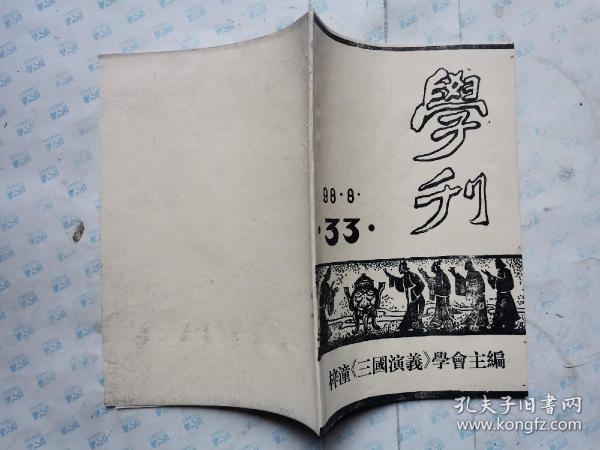 學刊
98·8·
·33·
梓潼《三國演義》學會主編
孔夫子旧書网
www.kongfz.com